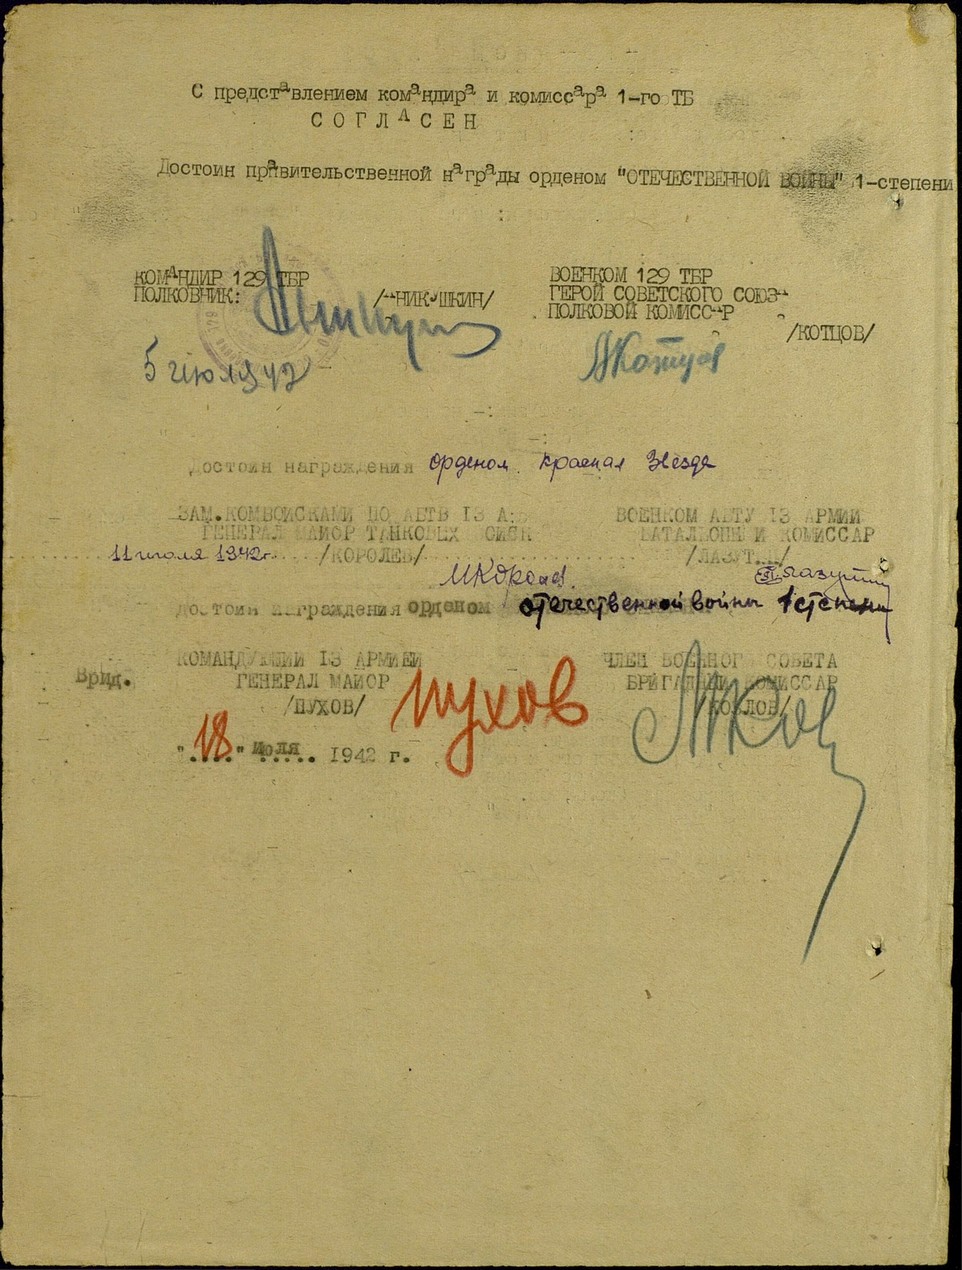 С представлением командира и комиссара 1-го ТБ
СОГЛАСЕН
Достоин правительственной награды орденом "ОТЕЧЕСТВЕННОЙ ВОЙНЫ" 1-степени
КОМАНДИР 129 ТБР
ПОЛКОВНИК: /АНИКУШКИН/
5 июля 42
ВОЕНКОМ 129 ТБР
ГЕРОЙ СОВЕТСКОГО СОЮЗА
ПОЛКОВОЙ КОМИССАР
/КОТЦОВ/
Достоин награждения орденом Красная Звезда
ЗАМ.КОМВОЙСКАМИ ПО АБТВ 13 А:
ГЕНЕРАЛ МАЙОР ТАНКОВЫХ ВОЙСК
11 июля 1942г. /КОРОЛЕВ/
МКоролев.
ВОЕНКОМ АБТУ 13 АРМИИ
БАТАЛЬОННЫЙ КОМИССАР
достоин награждения орденом отечественной войны 1 степени
Врид. КОМАНДУЮЩИЙ 13 АРМИЕЙ
ГЕНЕРАЛ МАЙОР
/ПУХОВ/
Пухов
"18" июля 1942 г.
ЧЛЕН ВОЕННОГО СОВЕТА
БРИГАДНЫЙ КОМИССАР
/КОЗЛОВ/